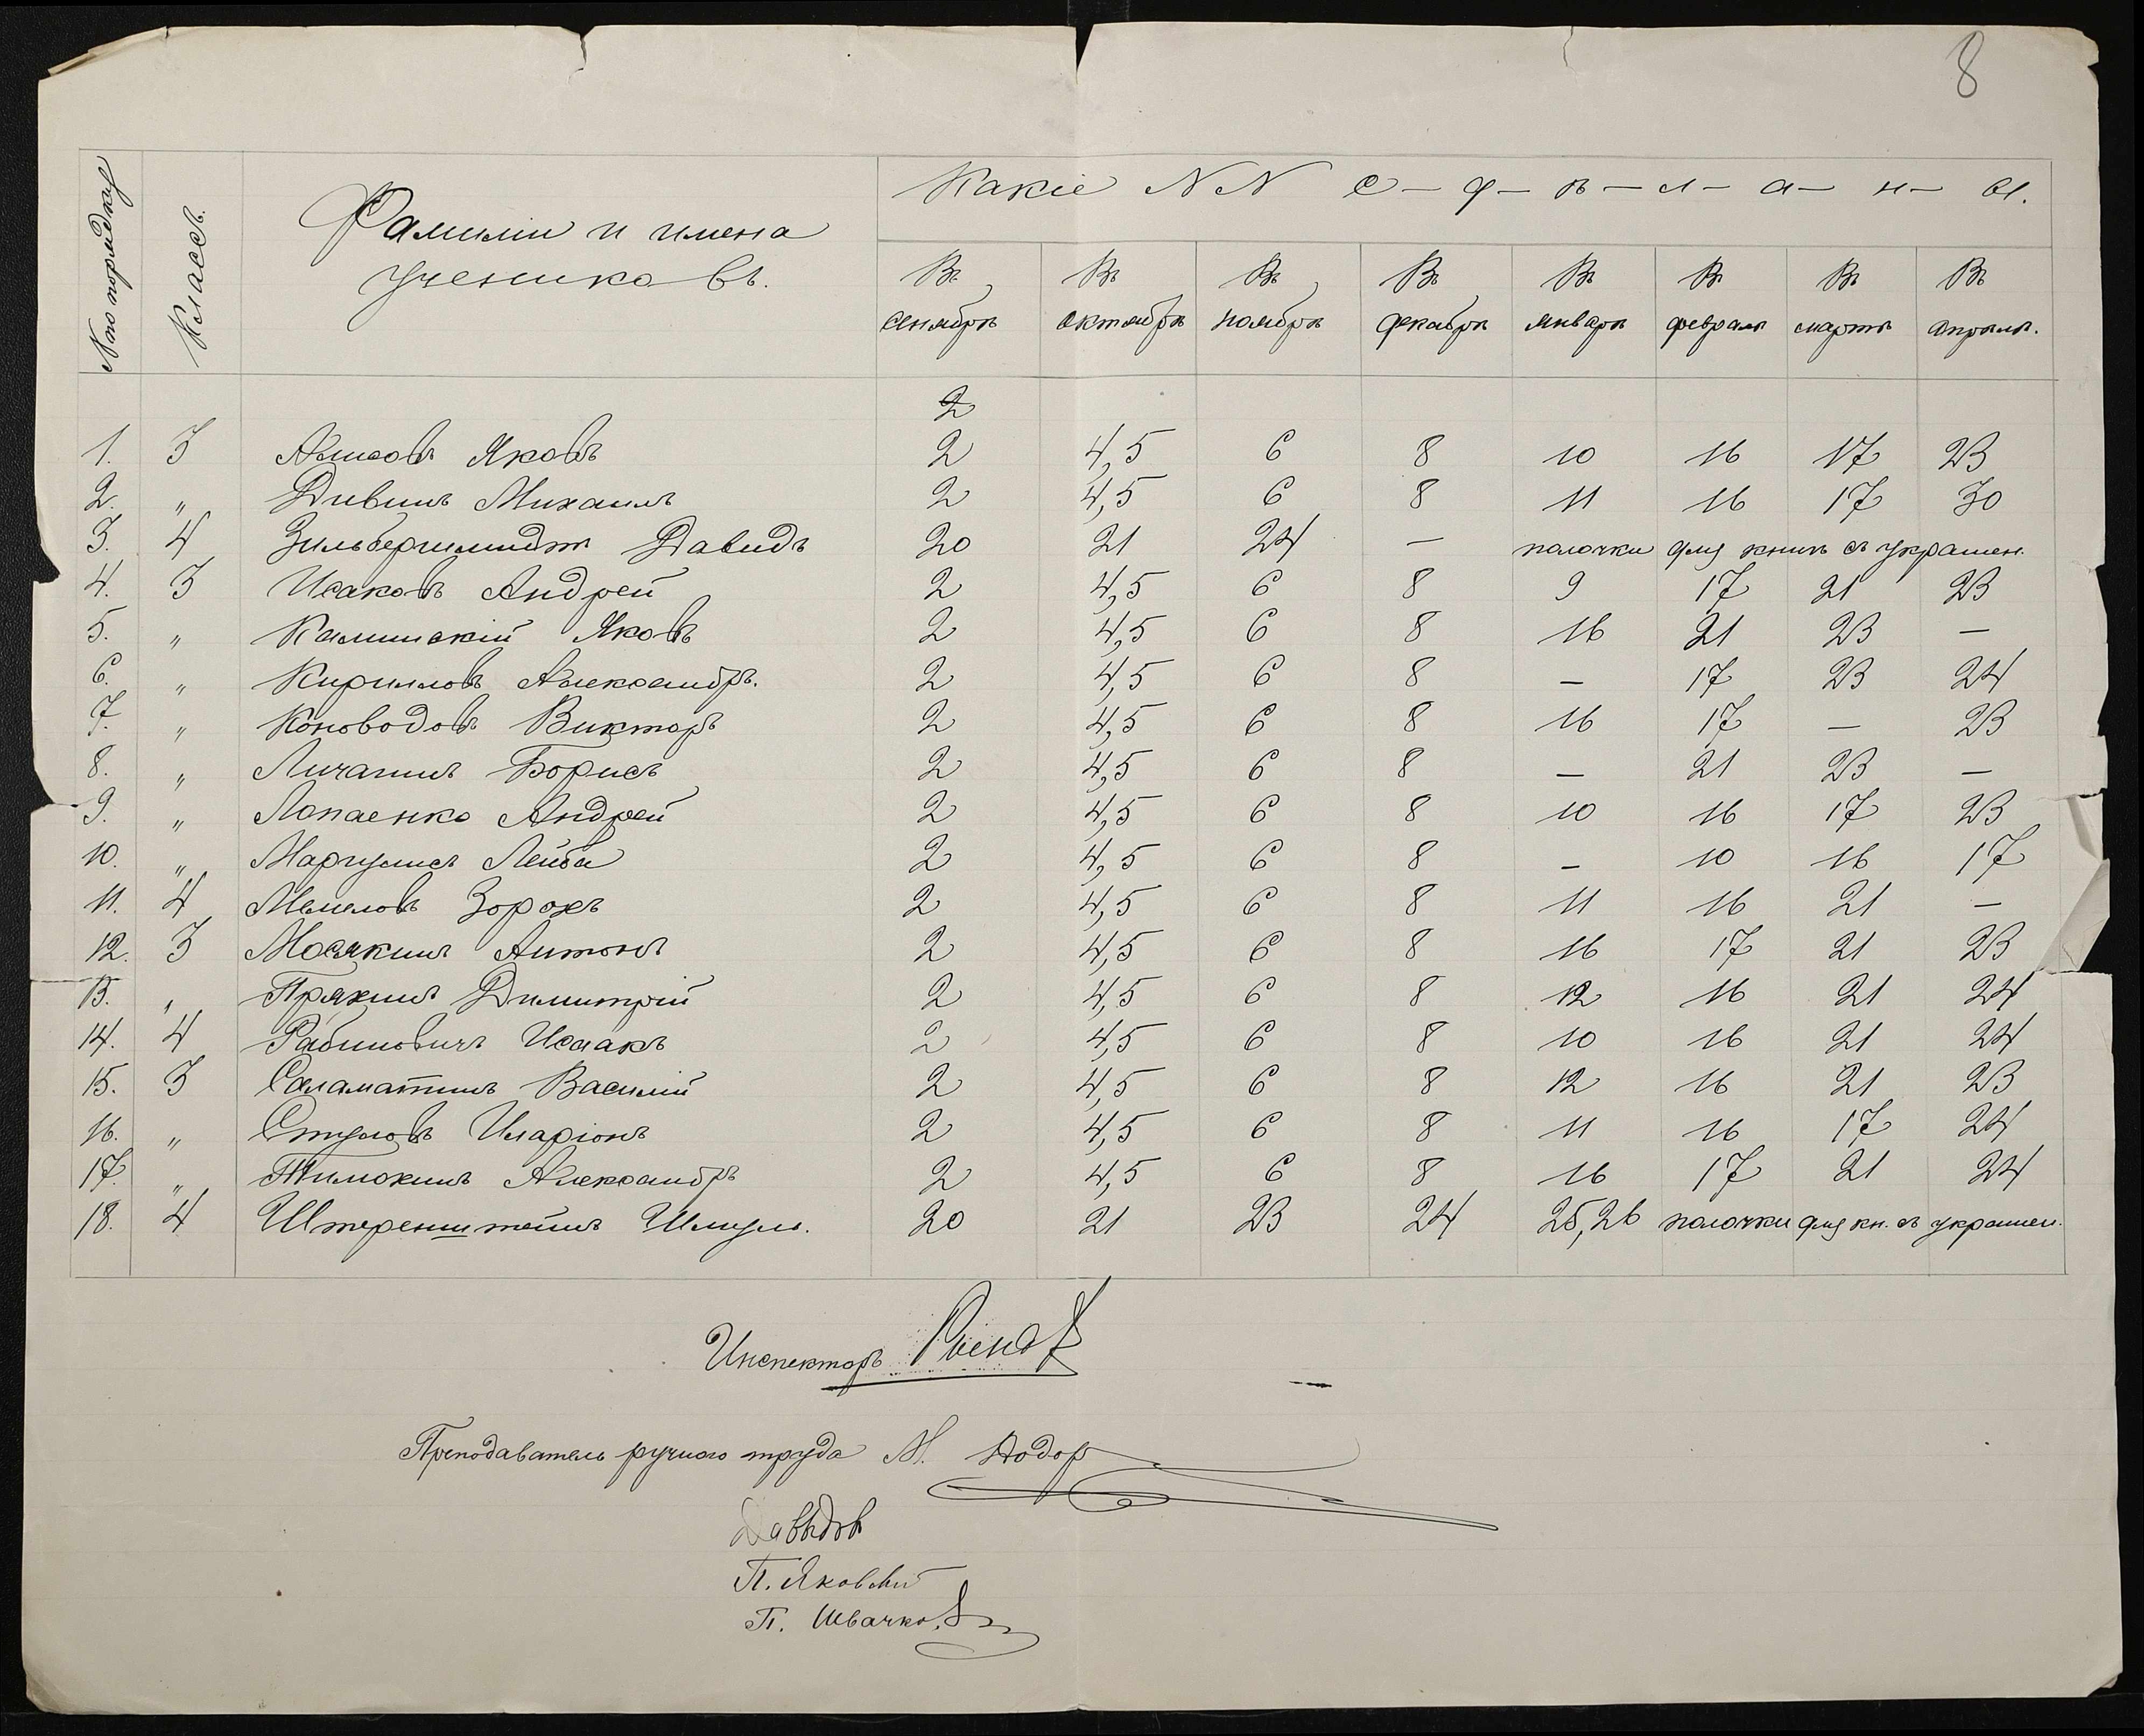 8
№ по порядку
Классъ.
Фамиліи и имена
учениковъ.
Какіе NN с-д-ѣ-л-а-н-ы.
Въ сентябрѣ Въ октябрѣ Въ ноябрѣ Въ декабрѣ Въ январѣ Въ февралѣ Въ мартѣ Въ апрѣлѣ.
2
1. 3 Алисовъ Яковъ 2 4,5 6 8 10 16 17 23
2. „ Дивинъ Михаилъ 2 4,5 6 8 11 16 17 30
3. 4 Зильбершмидтъ Давидъ 20 21 24 — полочки для книгъ съ украшен.
4. 3 Исаковъ Андрей 2 4,5 6 8 9 17 21 23
5. „ Калинскій Яковъ 2 4,5 6 8 16 21 23 —
6. „ Кирилловъ Александръ. 2 4,5 6 8 — 17 23 24
7. „ Коноводовъ Викторъ 2 4,5 6 8 16 17 — 23
8. „ Личагинъ Борисъ 2 4,5 6 8 — 21 23 —
9. „ Лопаенко Андрей 2 4,5 6 8 10 16 17 23
10. „ Маргулисъ Лейба 2 4,5 6 8 — 10 16 17
11. 4 Зорохъ 2 4,5 6 8 11 16 21 —
12. 3 Мосякинъ Антонъ 2 4,5 6 8 16 17 21 23
13. „ Пряхинъ Димитрій 2 4,5 6 8 12 16 21 24
14. 4 Рабиновичъ Исаакъ 2 4,5 6 8 10 16 21 24
15. 3 Саламатинъ Василій 2 4,5 6 8 12 16 21 23
16. „ Стуловъ Иларіонъ 2 4,5 6 8 11 16 17 24
17. „ Тимохинъ Александръ 2 4,5 6 8 16 17 21 24
18. 4 Штеренштейнъ Шмуль. 20 21 23 24 25,26 полочки для кн. съ украшен.
Инспекторъ
Преподаватель ручного труда М.
Давыдовъ
П.
П.